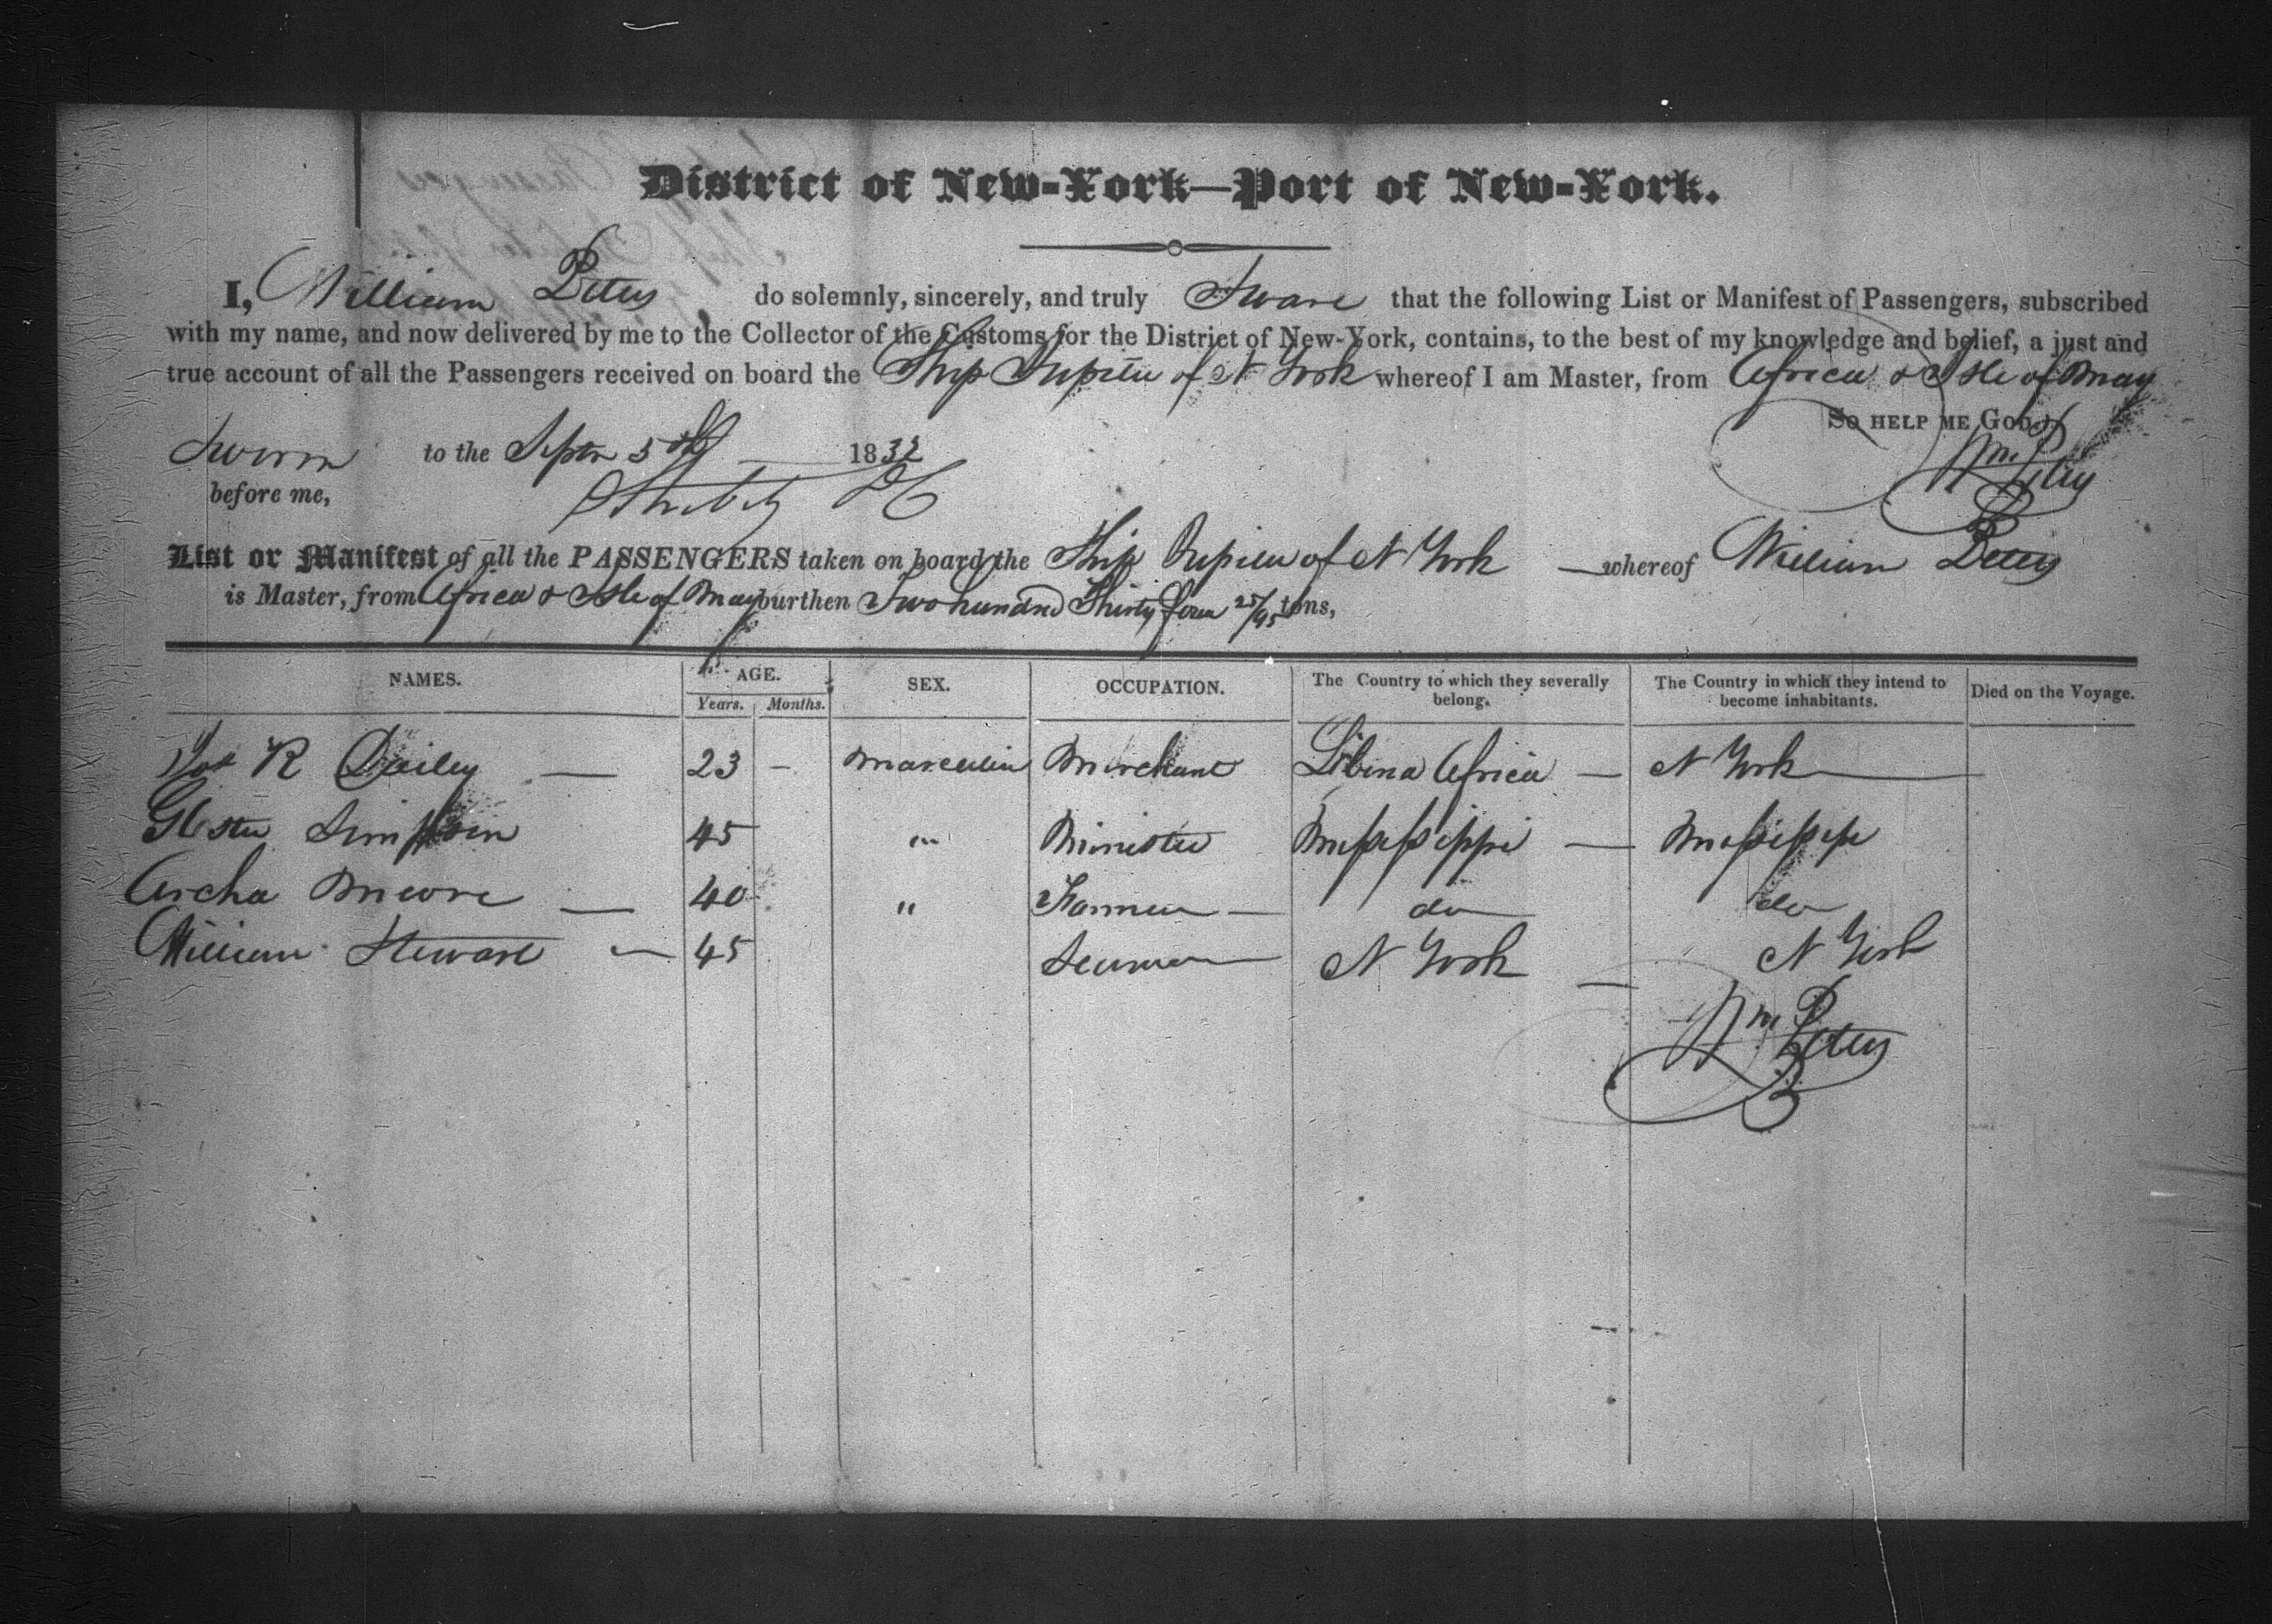 District of New-York—Port of New-York.
I, William Peters do solemnly, sincerely, and truly Sware that the following List or Manifest of Passengers, subscribed
with my name, and now delivered by me to the Collector of the Customs for the District of New-York, contains, to the best of my knowledge and belief, a just and
true account of all the Passengers received on board the Ship Jupiter of N York whereof I am Master, from Africa & Isle of May
So HELP ME GOD.
Sworn to the Septr 5th 1832 Wm Peters
before me,
List or Manifest of all the PASSENGERS taken on board the Ship Jupiter of N York whereof William Peters
is Master, from Africa & Isle of May burthen Two hundred Thirty four 25/95 tons,
NAMES. AGE. SEX. OCCUPATION. The Country to which they severally belong. The Country in which they intend to become inhabitants. Died on the Voyage.
Years. Months.
R Dailey — 23 - Masculin Merchant Libina Africa — N York
Gloster Simpson 45 " Minister Missisippi — Missisipi
Archa Moore — 40 " Farmer — do do
William Stewart — 45 Seaman — N York — N York
Wm Peters